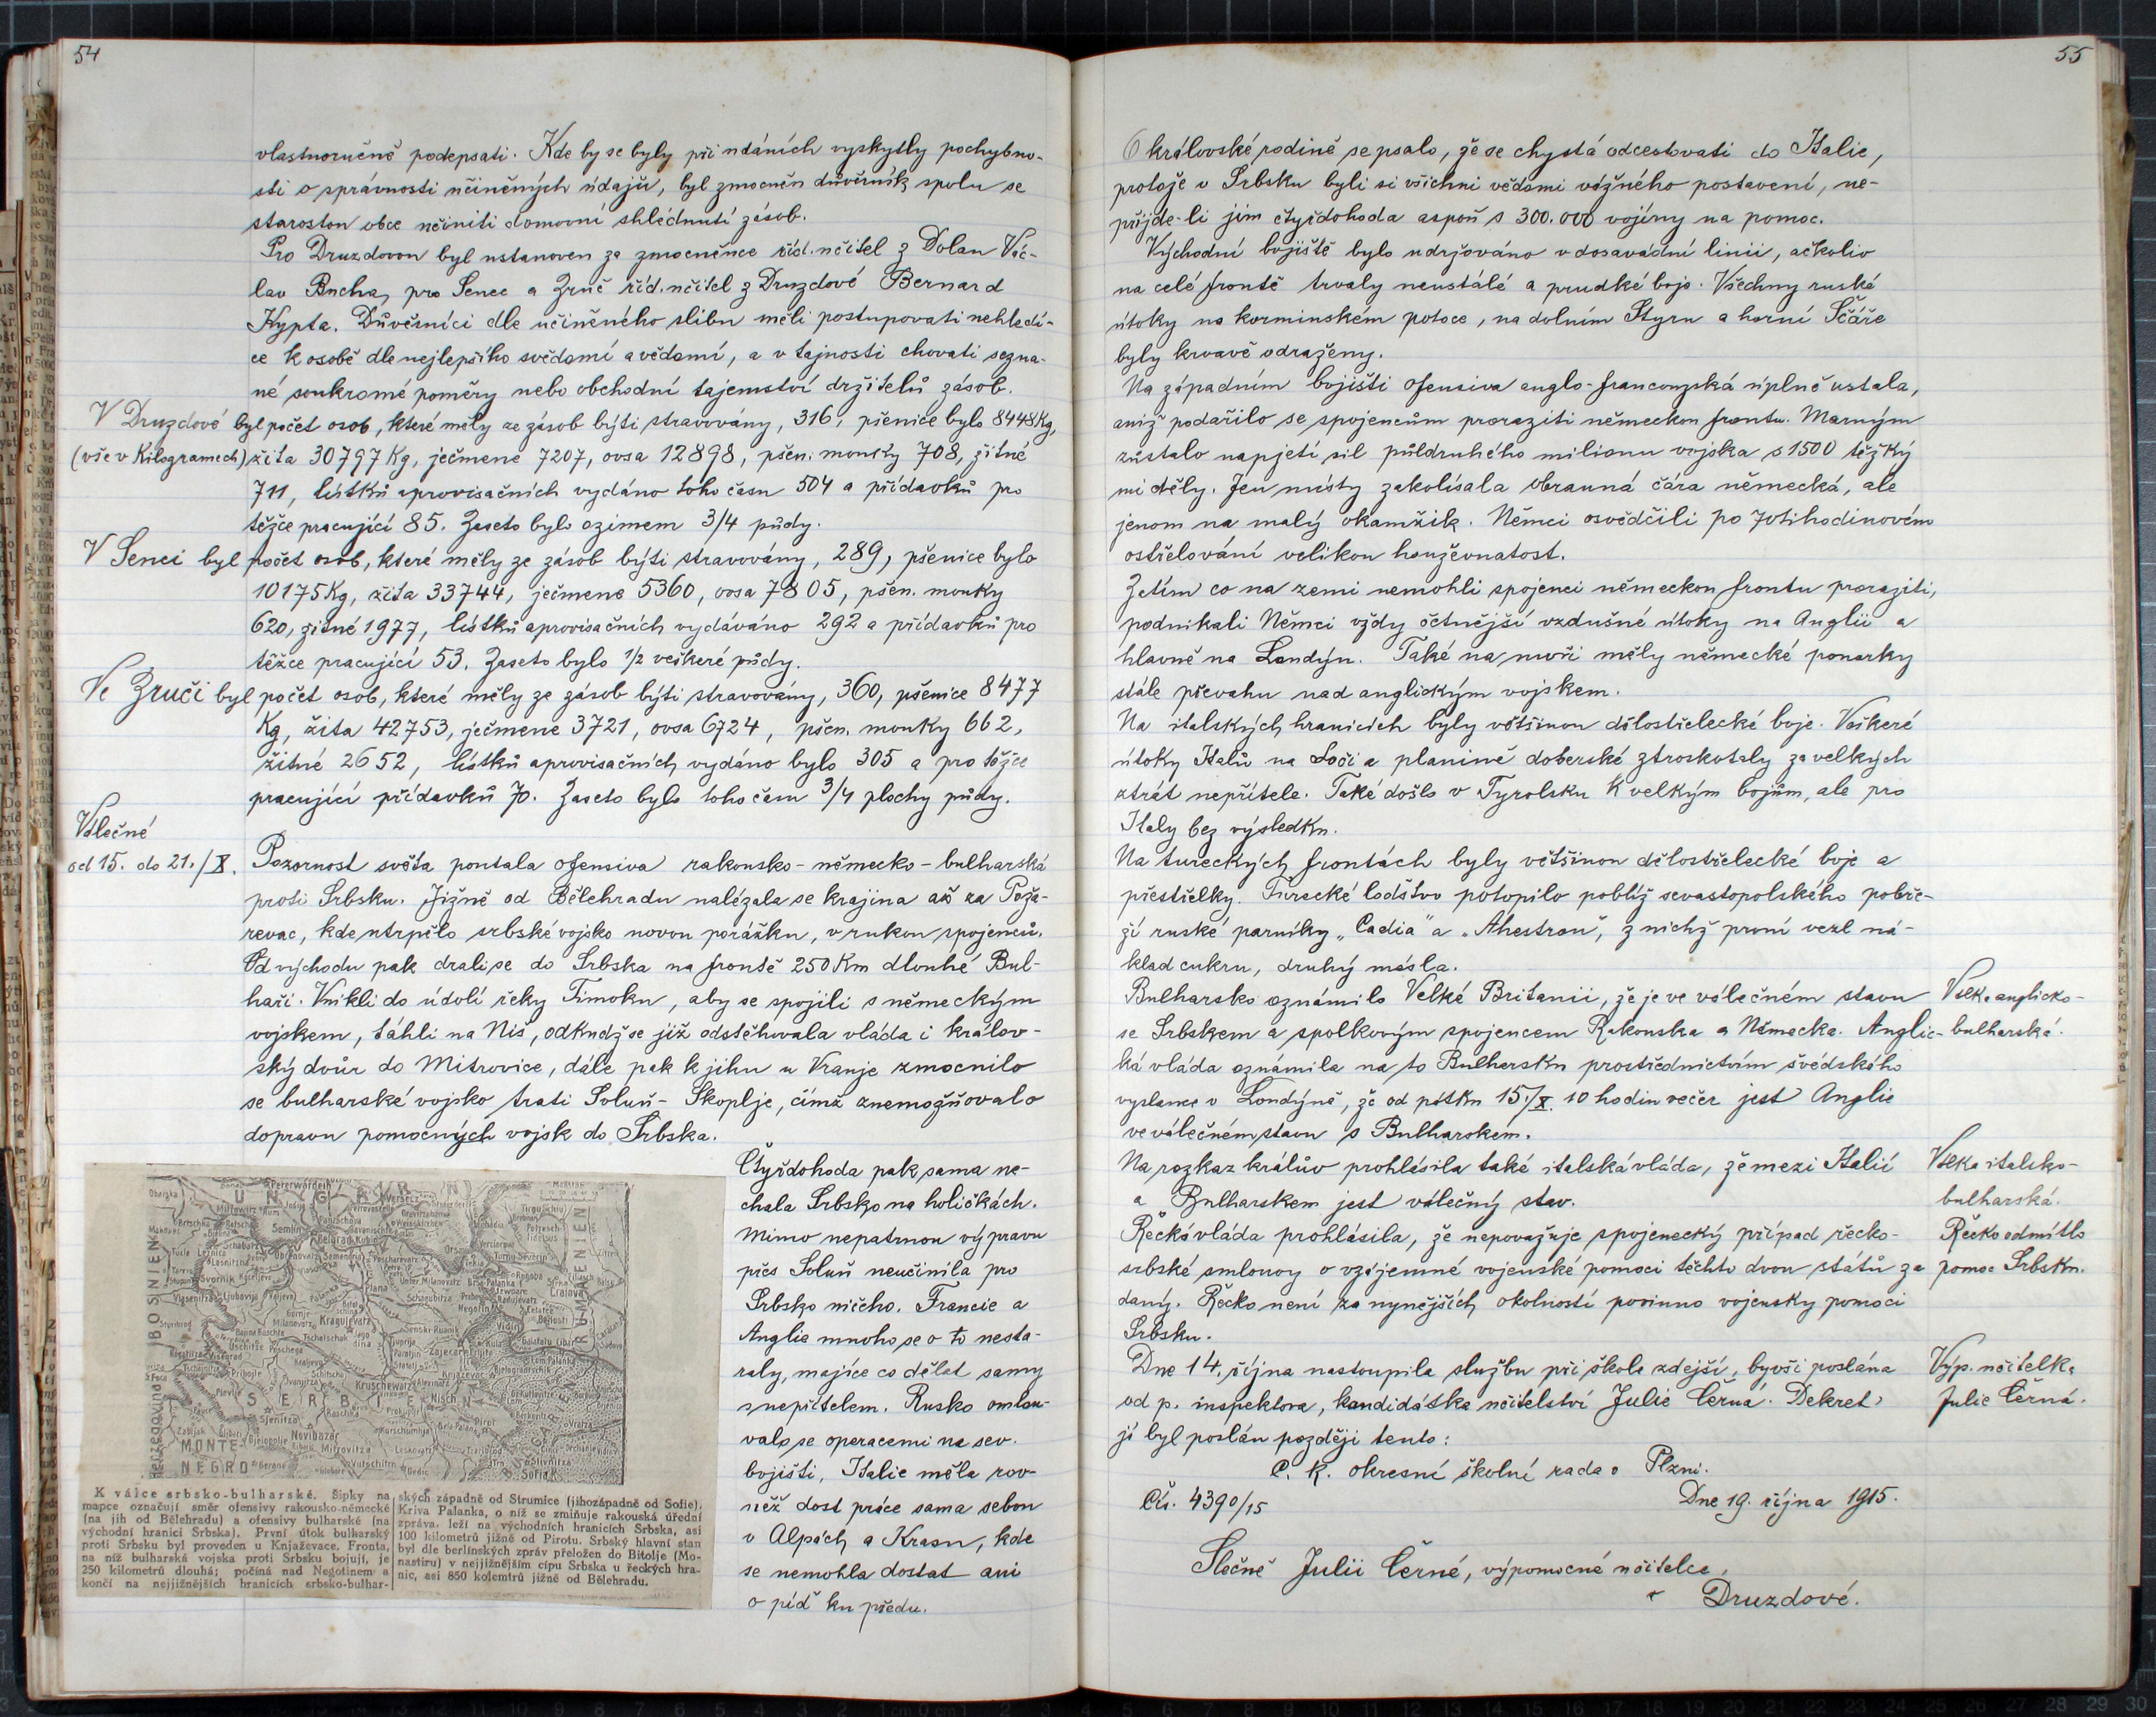 54
vlastnoručně podepsati. Kde by se byly při udáních vyskytly pochybno-
sti o správnosti učiněných údajů, byl zmocněn důvěrník spolu se
starostou obce učiniti domovní shlédnutí zásob.
Pro Druzdovou byl ustanoven za zmocněnce říd. učitel z Dolan Vác-
lav Bucha, pro Senec a Zruč říd. učitel z Druzdové Bernard
Kypta. Důvěrníci dle učiněného slibu měli postupovati nehledí-
ce k osobě dle nejlepšího svědomí a vědomí, a v tajnosti chovati sezna-
né soukromé poměry nebo obchodní tajemství držitelů zásob.
V Druzdové byl počet osob, které měly ze zásob býti stravovány, 316, pšenice bylo 8448 Kg,
(vše v Kilogramech) žita 30797 Kg, ječmene 7207, ovsa 12898, pšen. mouky 708, žitné
711, lístků aprovisačních vydáno toho času 504 a přídavků pro
těžce pracující 85. Zaseto bylo ozimem 3/4 půdy.
V Senci byl počet osob, které měly ze zásob býti stravovány, 289, pšenice bylo
10175 Kg, žita 33744, ječmene 5360, ovsa 7805, pšen. mouky
620, žitné 1977, lístků aprovisačních vydáváno 292 a přídavků pro
těžce pracující 53. Zaseto bylo 1/2 veškeré půdy.
Ve Zruči byl počet osob, které měly ze zásob býti stravovány, 360, pšenice 8477
Kg, žita 42753, ječmene 3721, ovsa 6724, pšen. mouky 662,
žitné 2652, lístků aprovisačních vydáno bylo 305 a pro těžce
pracující přídavků 70. Zaseto bylo toho času 3/4 plochy půdy.
Válečné
od 15. do 21./X.
Pozornost světa poutala ofensiva rakousko-německo-bulharská
proti Srbsku. Jižně od Bělehradu nalézala se krajina až za Poža-
revac, kde utrpělo srbské vojsko novou porážku, v rukou spojenců.
Od východu pak drali se do Srbska na frontě 250 Km dlouhé Bul-
haři. Vnikli do údolí řeky Timoku, aby se spojili s německým
vojskem, táhli na Niš, odkudž se již odstěhovala vláda i králov-
ský dvůr do Mitrovice, dále pak k jihu u Vranje zmocnilo
se bulharské vojsko trati Soluň-Skoplje, čímž znemožňovalo
dopravu pomocných vojsk do Srbska.
Čtyřdohoda pak sama ne-
chala Srbsko na holičkách.
Mimo nepatrnou výpravu
přes Soluň neučinila pro
Srbsko ničeho. Francie a
Anglie mnoho se o to nesta-
raly, majíce co dělat samy
s nepřítelem. Rusko omlou-
valo se operacemi na sev.
bojišti, Italie měla rov-
něž dost práce sama sebou
v Alpách a Krasu, kde
se nemohla dostat ani
o píď ku předu.
UNGARN
BOSNIEN
RUMÄNIEN
SERBIEN
MONTE-
NEGRO
Herzegovina
Semlin
Belgrad
Kragujevatz
Kruschewatz
Nisch
Pirot
Sofia
Novibazar
Mitrovitza
Vidin
Craiova
K válce srbsko-bulharské. Šipky na
mapce označují směr ofensivy rakousko-německé
(na jih od Bělehradu) a ofensivy bulharské (na
východní hranici Srbska). První útok bulharský
proti Srbsku byl proveden u Knjaževace. Fronta,
na níž bulharská vojska proti Srbsku bojují, je
250 kilometrů dlouhá; počíná nad Negotinem a
končí na nejjižnějších hranicích srbsko-bulhar-
ských západně od Strumice (jihozápadně od Sofie).
Kriva Palanka, o níž se zmiňuje rakouská úřední
zpráva, leží na východních hranicích Srbska, asi
100 kilometrů jižně od Pirotu. Srbský hlavní stan
byl dle berlínských zpráv přeložen do Bitolje (Mo-
nastiru) v nejjižnějším cípu Srbska u řeckých hra-
nic, asi 850 kolemtrů jižně od Bělehradu.
55
O královské rodině se psalo, že se chystá odcestovati do Italie,
protože v Srbsku byli si všichni vědomi vážného postavení, ne-
přijde-li jim čtyřdohoda aspoň s 300.000 vojíny na pomoc.
Východní bojiště bylo udržováno v dosavádní linii, ačkoliv
na celé frontě trvaly neustálé a prudké boje. Všechny ruské
útoky na korminském potoce, na dolním Styru a horní Ščáře
byly krvavě odraženy.
Na západním bojišti ofensiva anglo-francouzská úplně ustala,
aniž podařilo se spojencům proraziti německou frontu. Marným
zůstalo napjetí sil půldruhého milionu vojska s 1500 těžký
mi děly. Jen místy zakolísala obranná čára německá, ale
jenom na malý okamžik. Němci osvědčili po 70tihodinovém
ostřelování velikou houževnatost.
Zatím co na zemi nemohli spojenci německou frontu proraziti,
podnikali Němci vždy četnější vzdušné útoky na Anglii a
hlavně na Londýn. Také na moři měly německé ponorky
stále převahu nad anglickým vojskem.
Na italských hranicích byly většinou dělostřelecké boje. Veškeré
útoky Italů na Soči a planině doberské ztroskotaly za velkých
ztrát nepřítele. Také došlo v Tyrolsku k velkým bojům, ale pro
Italy bez výsledku.
Na tureckých frontách byly většinou dělostřelecké boje a
přestřelky. Turecké loďstvo potopilo poblíž sevastopolského pobře-
ží ruské parníky „Cadia" a „Ahestron", z nichž první vezl ná-
klad cukru, druhý másla.
Bulharsko oznámilo Velké Britanii, že je ve válečném stavu
se Srbskem a spolkovým spojencem Rakouska a Německa. Anglic-
ká vláda oznámila na to Bulharsku prostřednictvím švédského
vyslance v Londýně, že od pátku 15./X. 10 hodin večer jest Anglie
ve válečném stavu s Bulharskem.
Válka anglicko-
bulharská.
Na rozkaz králův prohlásila také italská vláda, že mezi Italií
a Bulharskem jest válečný stav.
Válka italsko-
bulharská.
Řecká vláda prohlásila, že nepovažuje spojenecký případ řecko-
srbské smlouvy o vzájemné vojenské pomoci těchto dvou států za
daný. Řecko není za nynějších okolností povinno vojensky pomoci
Srbsku.
Řecko odmítlo
pomoc Srbsku.
Dne 14. října nastoupila službu při škole zdejší, byvši poslána
od p. inspektora, kandidátka učitelství Julie Černá. Dekret
jí byl poslán později tento:
Výp. učitelka
Julie Černá.
C. k. okresní školní rada v Plzni.
Čís. 4390/15
Dne 19. října 1915.
Slečně Julii Černé, výpomocné učitelce
v Druzdové.